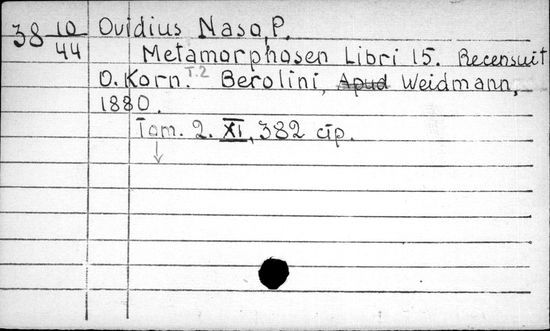 38 10/44 Ovidius Naso, P.
Metamorphosen Libri 15. Recensuit
O. Korn. T.2 Berolini, Apud Weidmann,
1880.
Tom. 2. XI, 382 стр.